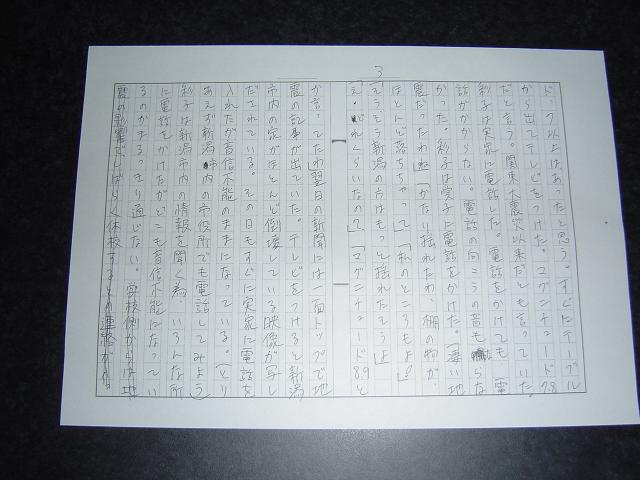 3
ド、7以上はあったと思う。すぐにテーブル
から出てテレビをつけた。マグニチュード7.8
だと言う。関東大震災以来だとも言っていた。
彩子は実家に電話した。電話をかけても「電
話がかからない。電話の向こうの音も鳴らな
かった。彩子は愛子に電話をかけた。「凄い地
震だったわね」「かなり揺れたわ、棚の物が、
ほとんど落ちちゃって」「私のところもよ」
「そうそう新潟の方はもっと揺れたそうよ」
「え、どれくらいなの?」「マグニチュード8.9と
が言ってたわ」翌日の新聞には一面トップで地
震の記事が出ていた。テレビをつけると新潟
市内の家がほとんど倒壊している映像が写し
だされている。その日もすぐに実家に電話を
入れたが音信不能のままになっている。「とり
あえず新潟市内の市役所でも電話してみよう」
彩子は新潟市内の情報を聞く為、いろんな所
に電話をかけたがどこも音信不能になってい
るのかまるっきり通じない。学校側からは地
震の影響でしばらく休校するとの連絡があ